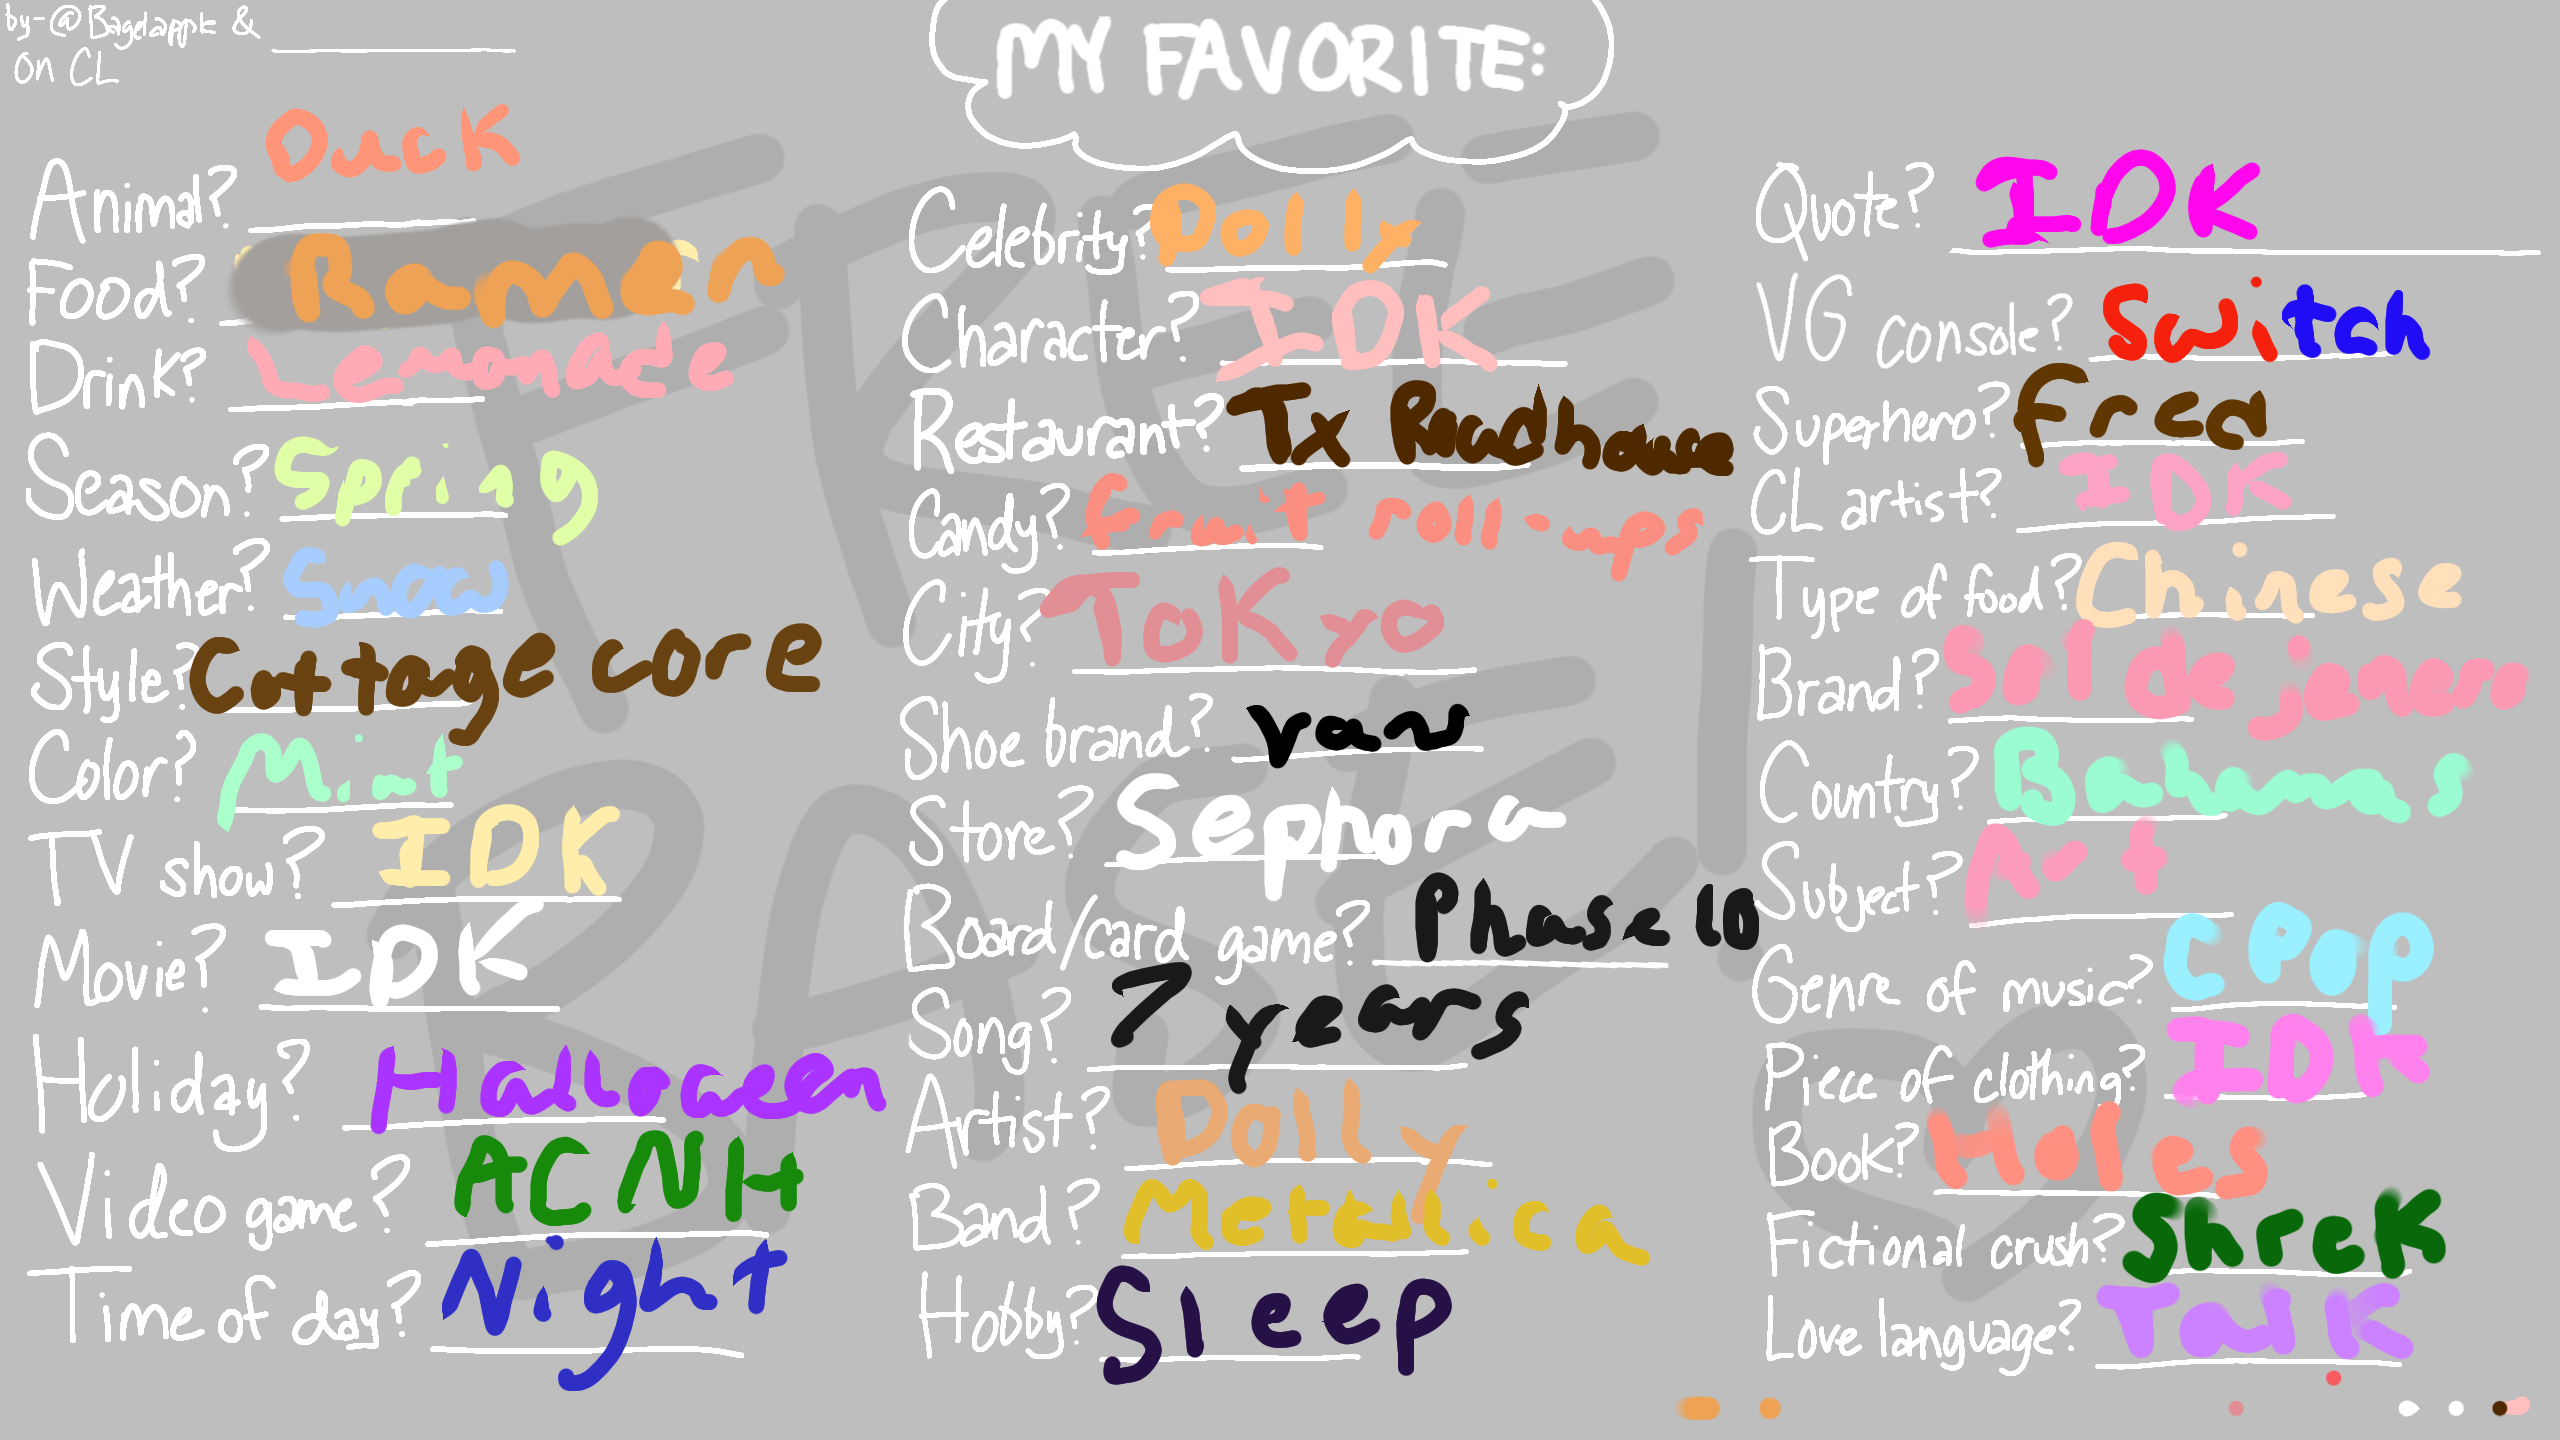 by-@Bagelapple &
on CL
MY FAVORITE:
Animal? Duck
Food? Ramen
Drink? Lemonade
Season? Spring
Weather? Snow
Style? Cottage core
Color? Mint
TV show? IDK
Movie? IDK
Holiday? Halloween
Video game? ACNH
Time of day? Night
Celebrity? Dolly
Character? IDK
Restaurant? Tx Roadhouse
Candy? fruit roll-ups
City? Tokyo
Shoe brand? vans
Store? Sephora
Board/card game? Phase 10
Song? 7 years
Artist? Dolly
Band? Metallica
Hobby? Sleep
Quote? IDK
VG console? Switch
Superhero? fred
CL artist? IDK
Type of food? Chinese
Brand? Sol de jenero
Country? Bahamas
Subject? Art
Genre of music? C POP
Piece of clothing? IDK
Book? Holes
Fictional crush? Shrek
Love language? Talk
FREE
BASE!